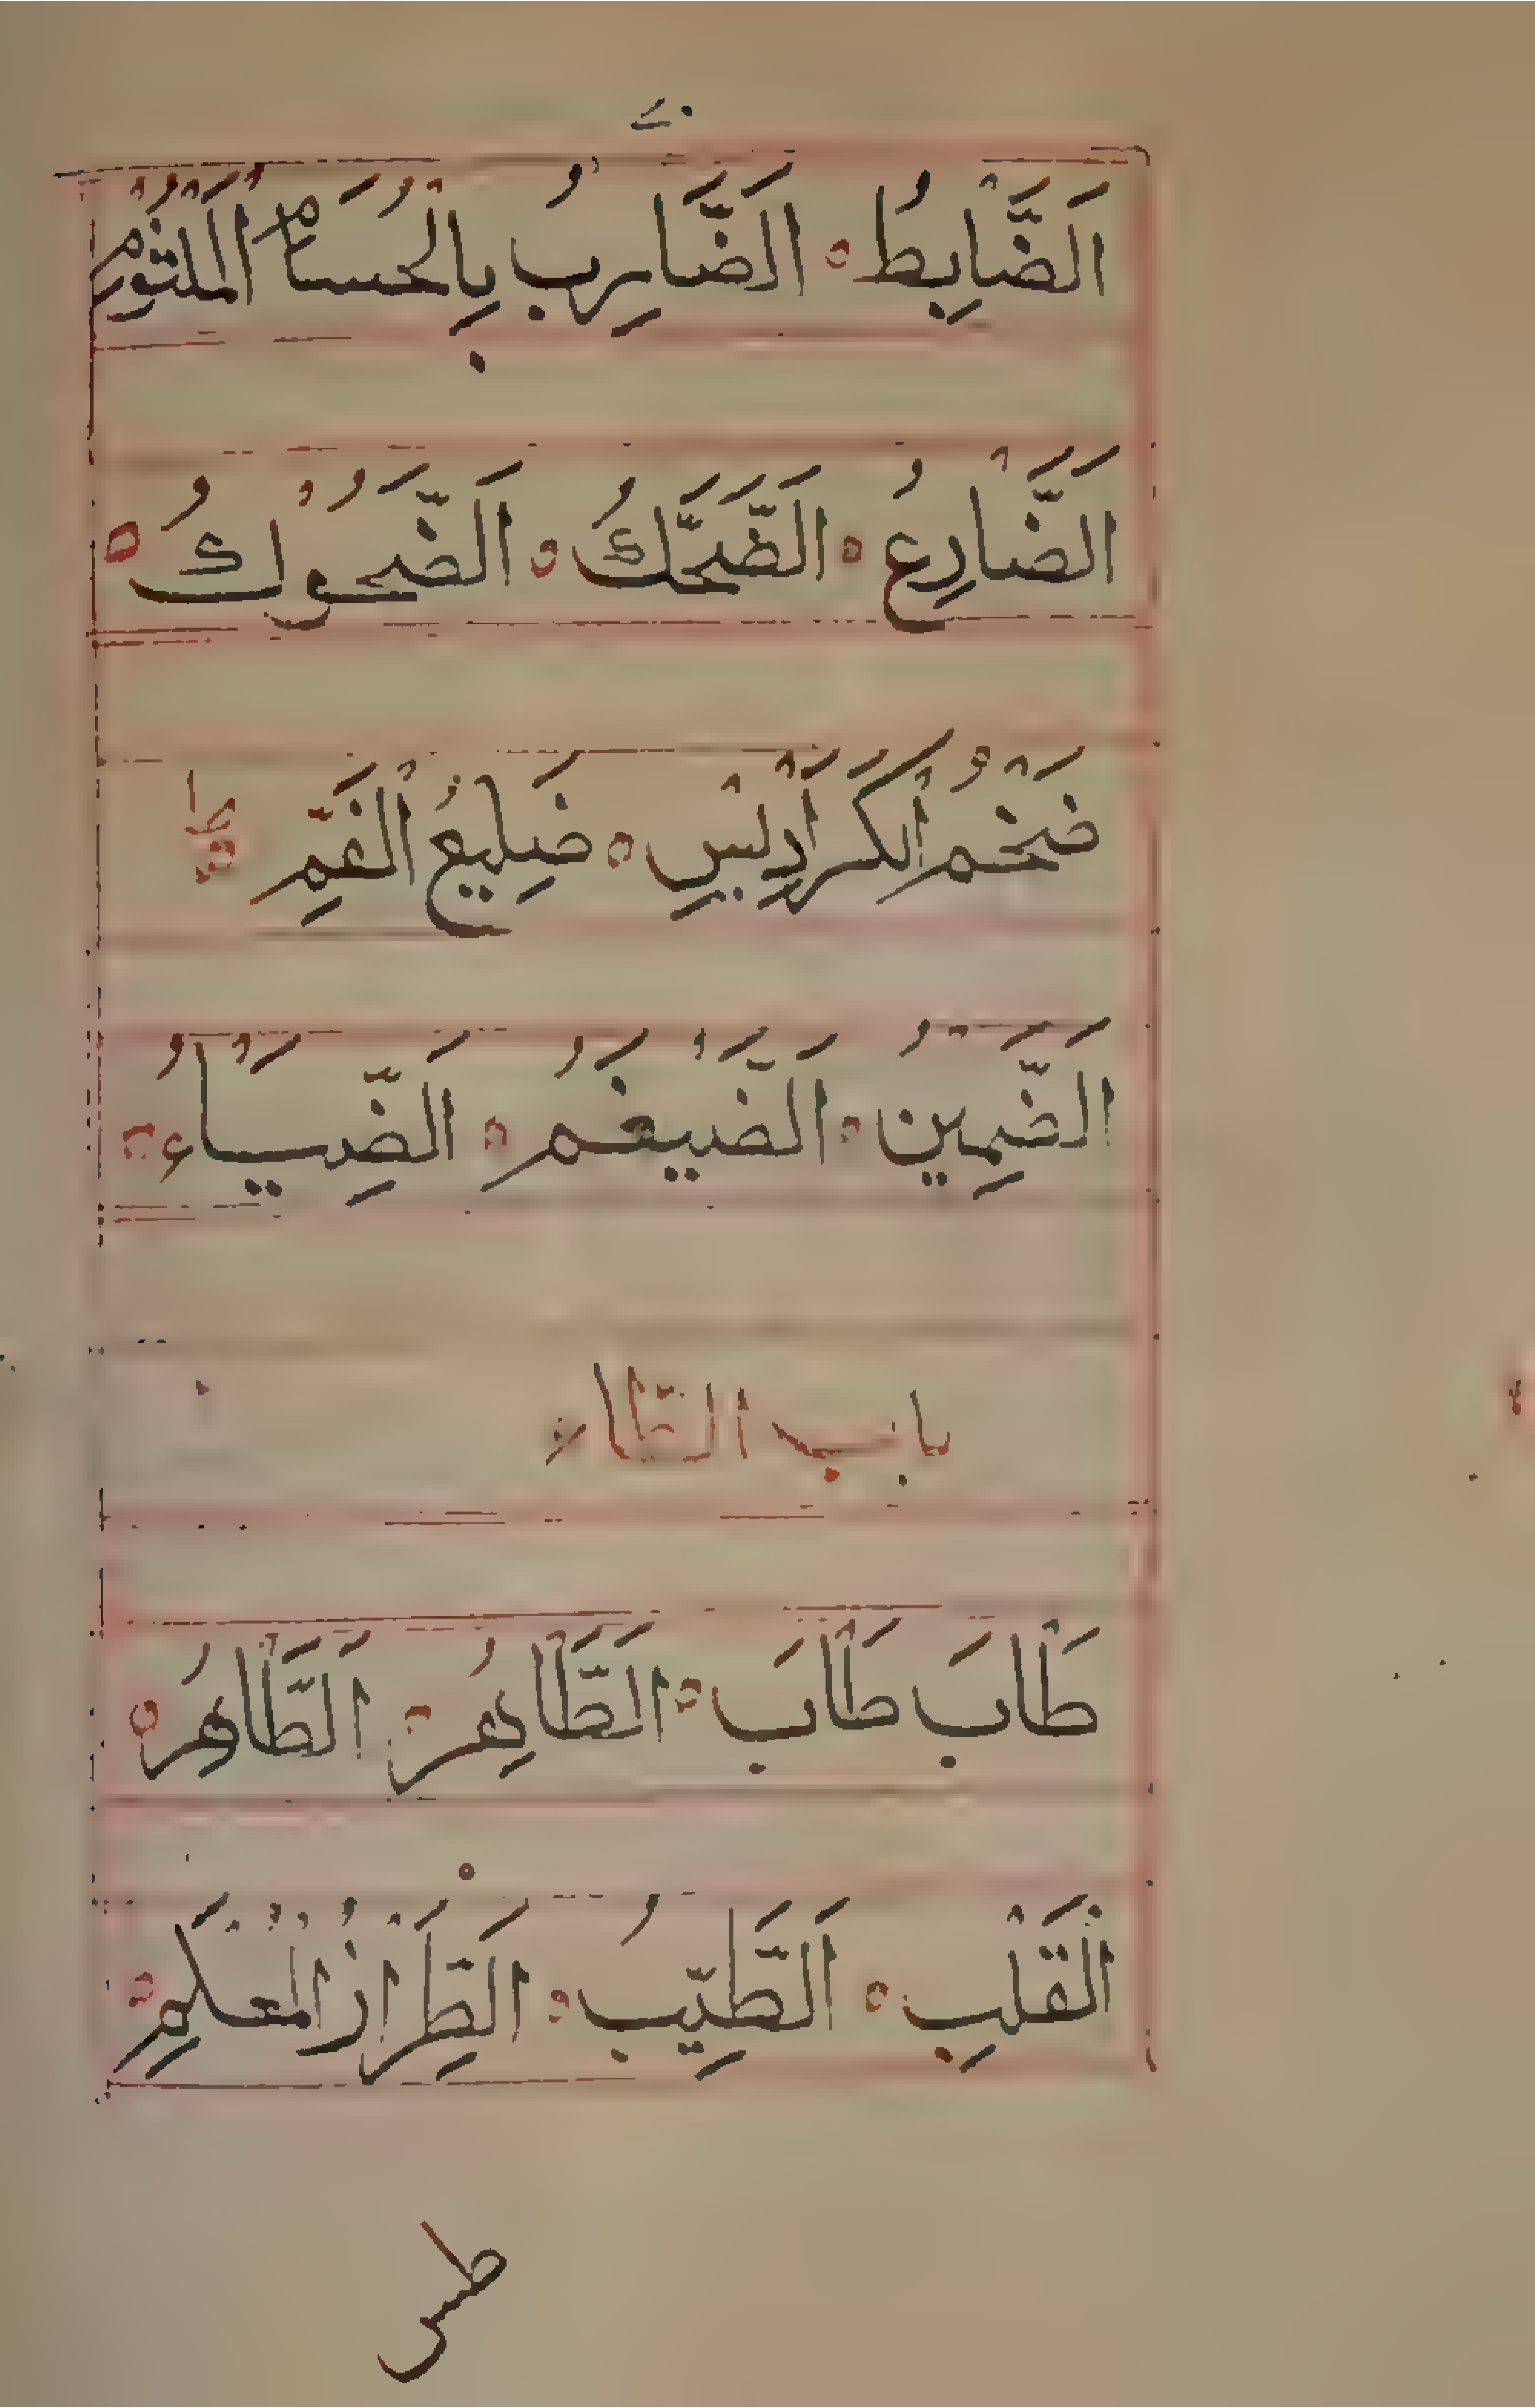 اَلضَّابِطُ ه اَلضَّارِبُ بِالْحُسَامِ الْمَلْثُوْمِ
اَلضَّارِعُ ه اَلضَّحَّكُ ه اَلضَّحُوْكُ ه
ضَخْمُ الْكَرَادِيْسِ ه ضَلِيْعُ الْفَمِّ
اَلضَّمِيْنُ ه اَلضَّيْغَمُ ه اَلضِّيَاءُ ه
باب الطّاء
طَابَ طَابَ ه اَلطَّاهِرُ ه اَلطَّاهِرُ
الْقَلْبِ ه اَلطَّيِّبُ ه اَلطِّرَازُ الْمُعْلَمِ ه
طس